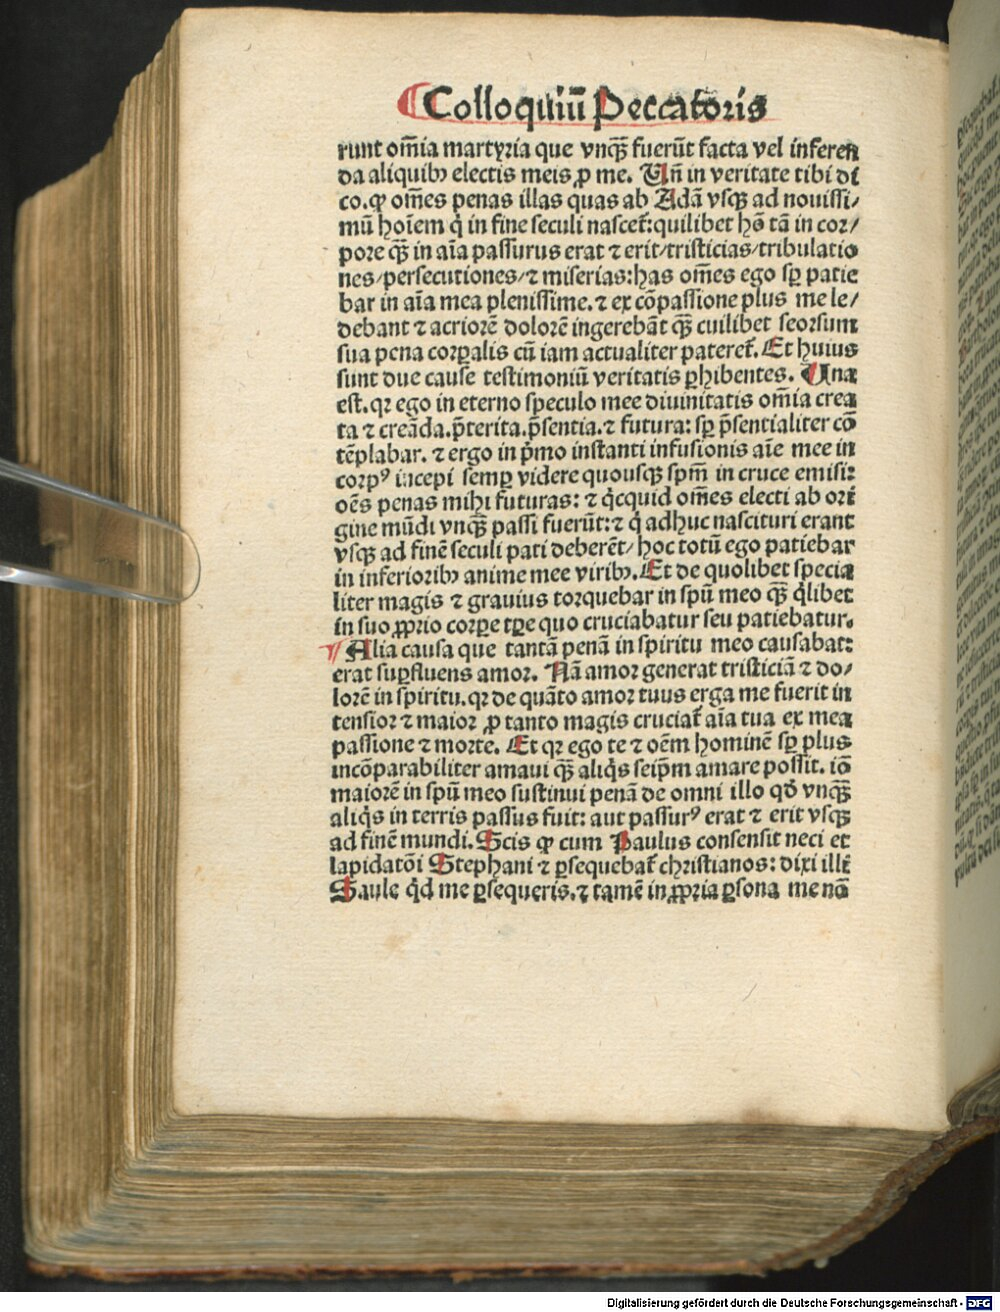 Colloquiū Peccatoris
runt om̄ia martyria que vnqȝ fuerūt facta vel inferen
da aliquibꝫ electis meis ꝓ me. Uñ in veritate tibi di
co. ꝙ om̄es penas illas quas ab Adā vsqȝ ad nouissi/
mū hoīem q̇ in fine seculi nascet᷑: quilibet hō tā in cor/
pore qȝ̄ in aīa passurus erat ⁊ erit/tristicias/tribulatio
nes/persecutiones/⁊ miserias: has om̄es ego sꝑ patie
bar in aīa mea plenissime. ⁊ ex cōpassione plus me le/
debant ⁊ acriorē dolorē ingerebāt qȝ̄ cuilibet seorsum
sua pena corꝑalis cū iam actualiter pateret᷑. Et huius
sunt due cause testimoniū veritatis ꝑhibentes. Una
est. qꝛ ego in eterno speculo mee diuinitatis om̄ia crea
ta ⁊ creāda. p̄terita. p̄sentia. ⁊ futura: sꝑ p̄sentialiter cō
tēplabar. ⁊ ergo in pͥmo instanti infusionis aīe mee in
corpꝰ incepi semꝑ videre quousqȝ spm̄ in cruce emisi:
oēs penas mihi futuras: ⁊ q̇cquid om̄es electi ab ori
gine mūdi vnqȝ̄ passi fuerūt: ⁊ q̇ adhuc nascituri erant
vsqȝ ad finē seculi pati deberēt/ hoc totū ego patiebar
in inferioribꝫ anime mee viribꝫ. Et de quolibet specia
liter magis ⁊ grauius torquebar in spū meo qȝ̄ q̇libet
in suo ꝓprio corꝑe tꝑe quo cruciabatur seu patiebatur.
Alia causa que tantā penā in spiritu meo causabat:
erat suꝑfluens amor. Nā amor generat tristiciā ⁊ do/
lorē in spiritu. qꝛ de quāto amor tuus erga me fuerit in
tensior ⁊ maior ꝓ tanto magis cruciat᷑ aīa tua ex mea
passione ⁊ morte. Et qꝛ ego te ⁊ oēm hominē sꝑ plus
incōparabiliter amaui qȝ̄ aliq̇s seip̄m amare possit. iō
maiorē in spū meo sustinui penā de omni illo qḋ vnqȝ̄
aliq̇s in terris passus fuit: aut passurꝰ erat ⁊ erit vsqȝ
ad finē mundi. Scis ꝙ cum Paulus consensit neci et
lapidatōi Stephani ⁊ ꝑsequebat᷑ christianos: dixi illi
Saule q̇d me ꝑsequeris. ⁊ tamē in ꝓpria ꝑsona me nō
Digitalisierung gefördert durch die Deutsche Forschungsgemeinschaft - DFG